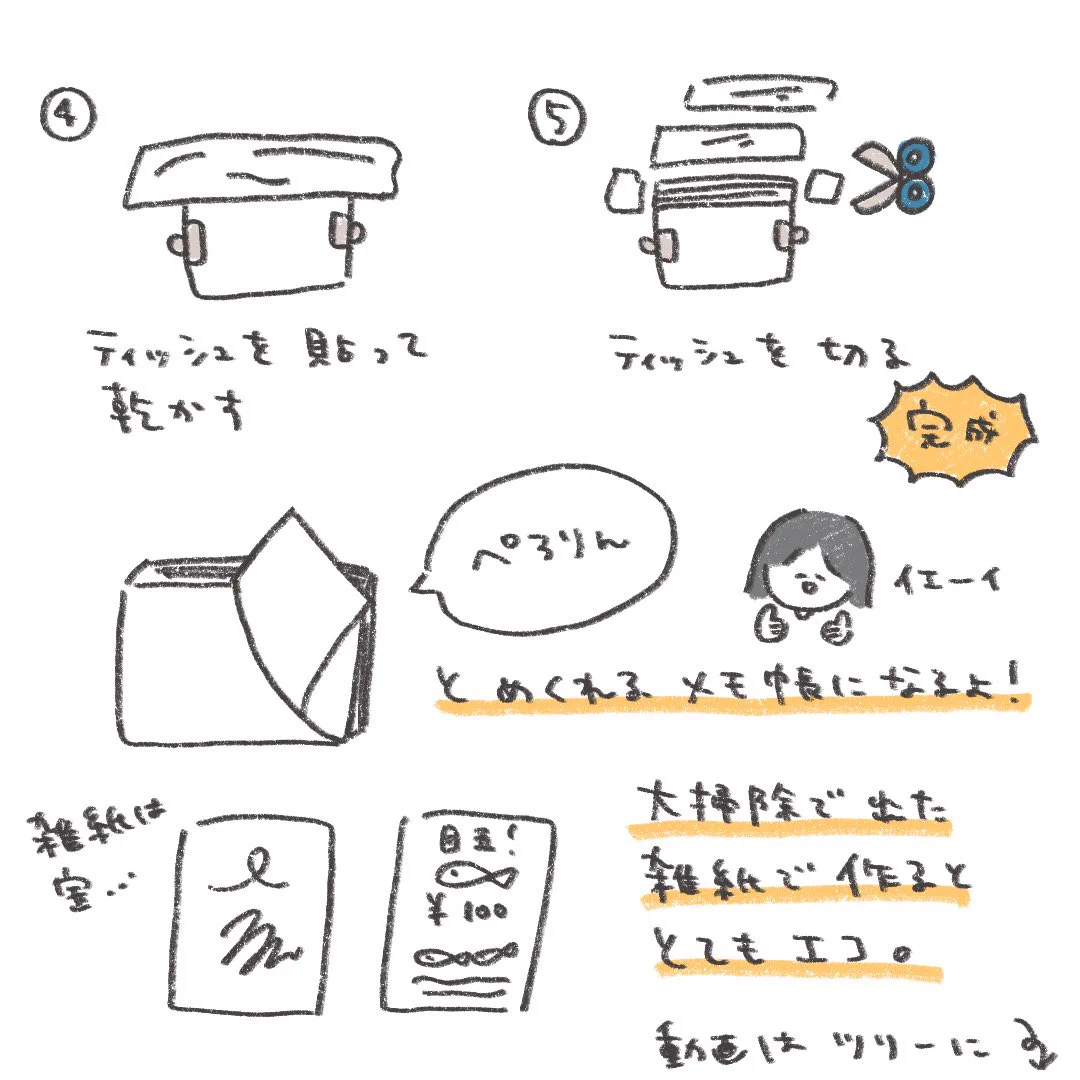 ④
ティッシュを貼って
乾かす
⑤
ティッシュを切る
完成
ぺろりん
イエーイ
とめくれるメモ帳になるよ!
雑紙は
宝…
目玉!
¥100
大掃除で出た
雑紙で作ると
とてもエコ。
動画はツリーに